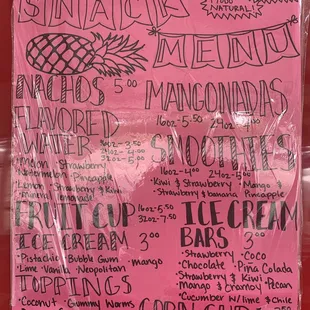 SNACK
NATURAL!
MENU
NACHOS 5.00
MANGONADAS
16oz-5.50 24oz-
FLAVORED
WATER
24oz-
32oz-5.00
Melon · Strawberry
Watermelon · Pineapple
Lemon · Strawberry & Kiwi
mineral lemonade
SMOOTHIES
16oz-4.00 24oz-5.00
· Kiwi & Strawberry · Mango
· Strawberry & banana Pineapple
FRUIT CUP 16oz-5.50
32oz-7.50
ICE CREAM 3.00
· Pistachio · Bubble Gum · mango
· Lime · Vanilla · Neopolitan
TOPPINGS
· Coconut · Gummy Worms
ICE CREAM
BARS 3.00
· Strawberry · Coco
· Chocolate · Piña Colada
· Strawberry & Kiwi
· Mango & Cramoy · Pecan
· Cucumber w/ lime & Chile
CORN